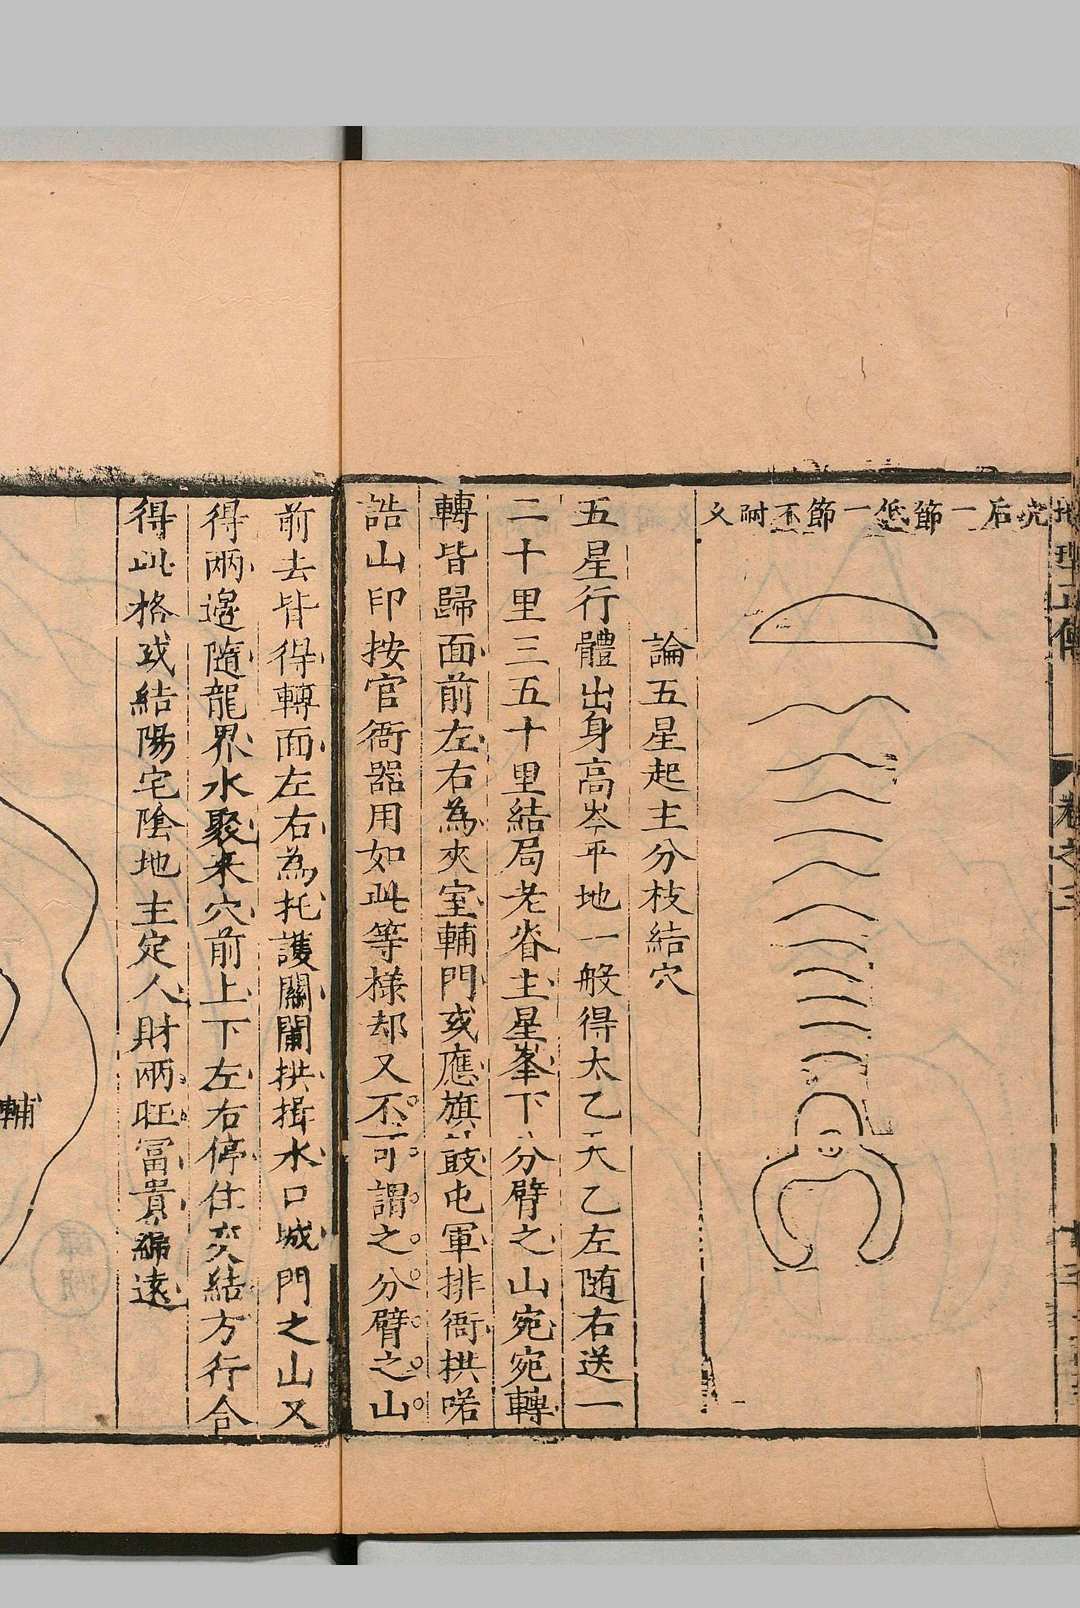 穴后一節低一節不耐久
論五星起主分枝結穴
五星行體出身高岑平地一般得太乙天乙左随右送一
二十里三五十里結局老眷主星峯下分臂之山宛宛轉
轉皆歸面前左右為夾室輔門或應旗鼓屯軍排衙拱喏
誥山印按官衙器用如此等樣却又不可謂之分臂之山
前去皆得轉面左右為托護關闌拱揖水口城門之山又
得兩邊隨龍界水聚来穴前上下左右停住交結方行合
得此格或結陽宅陰地主定人財兩旺富貴綿遠
輔